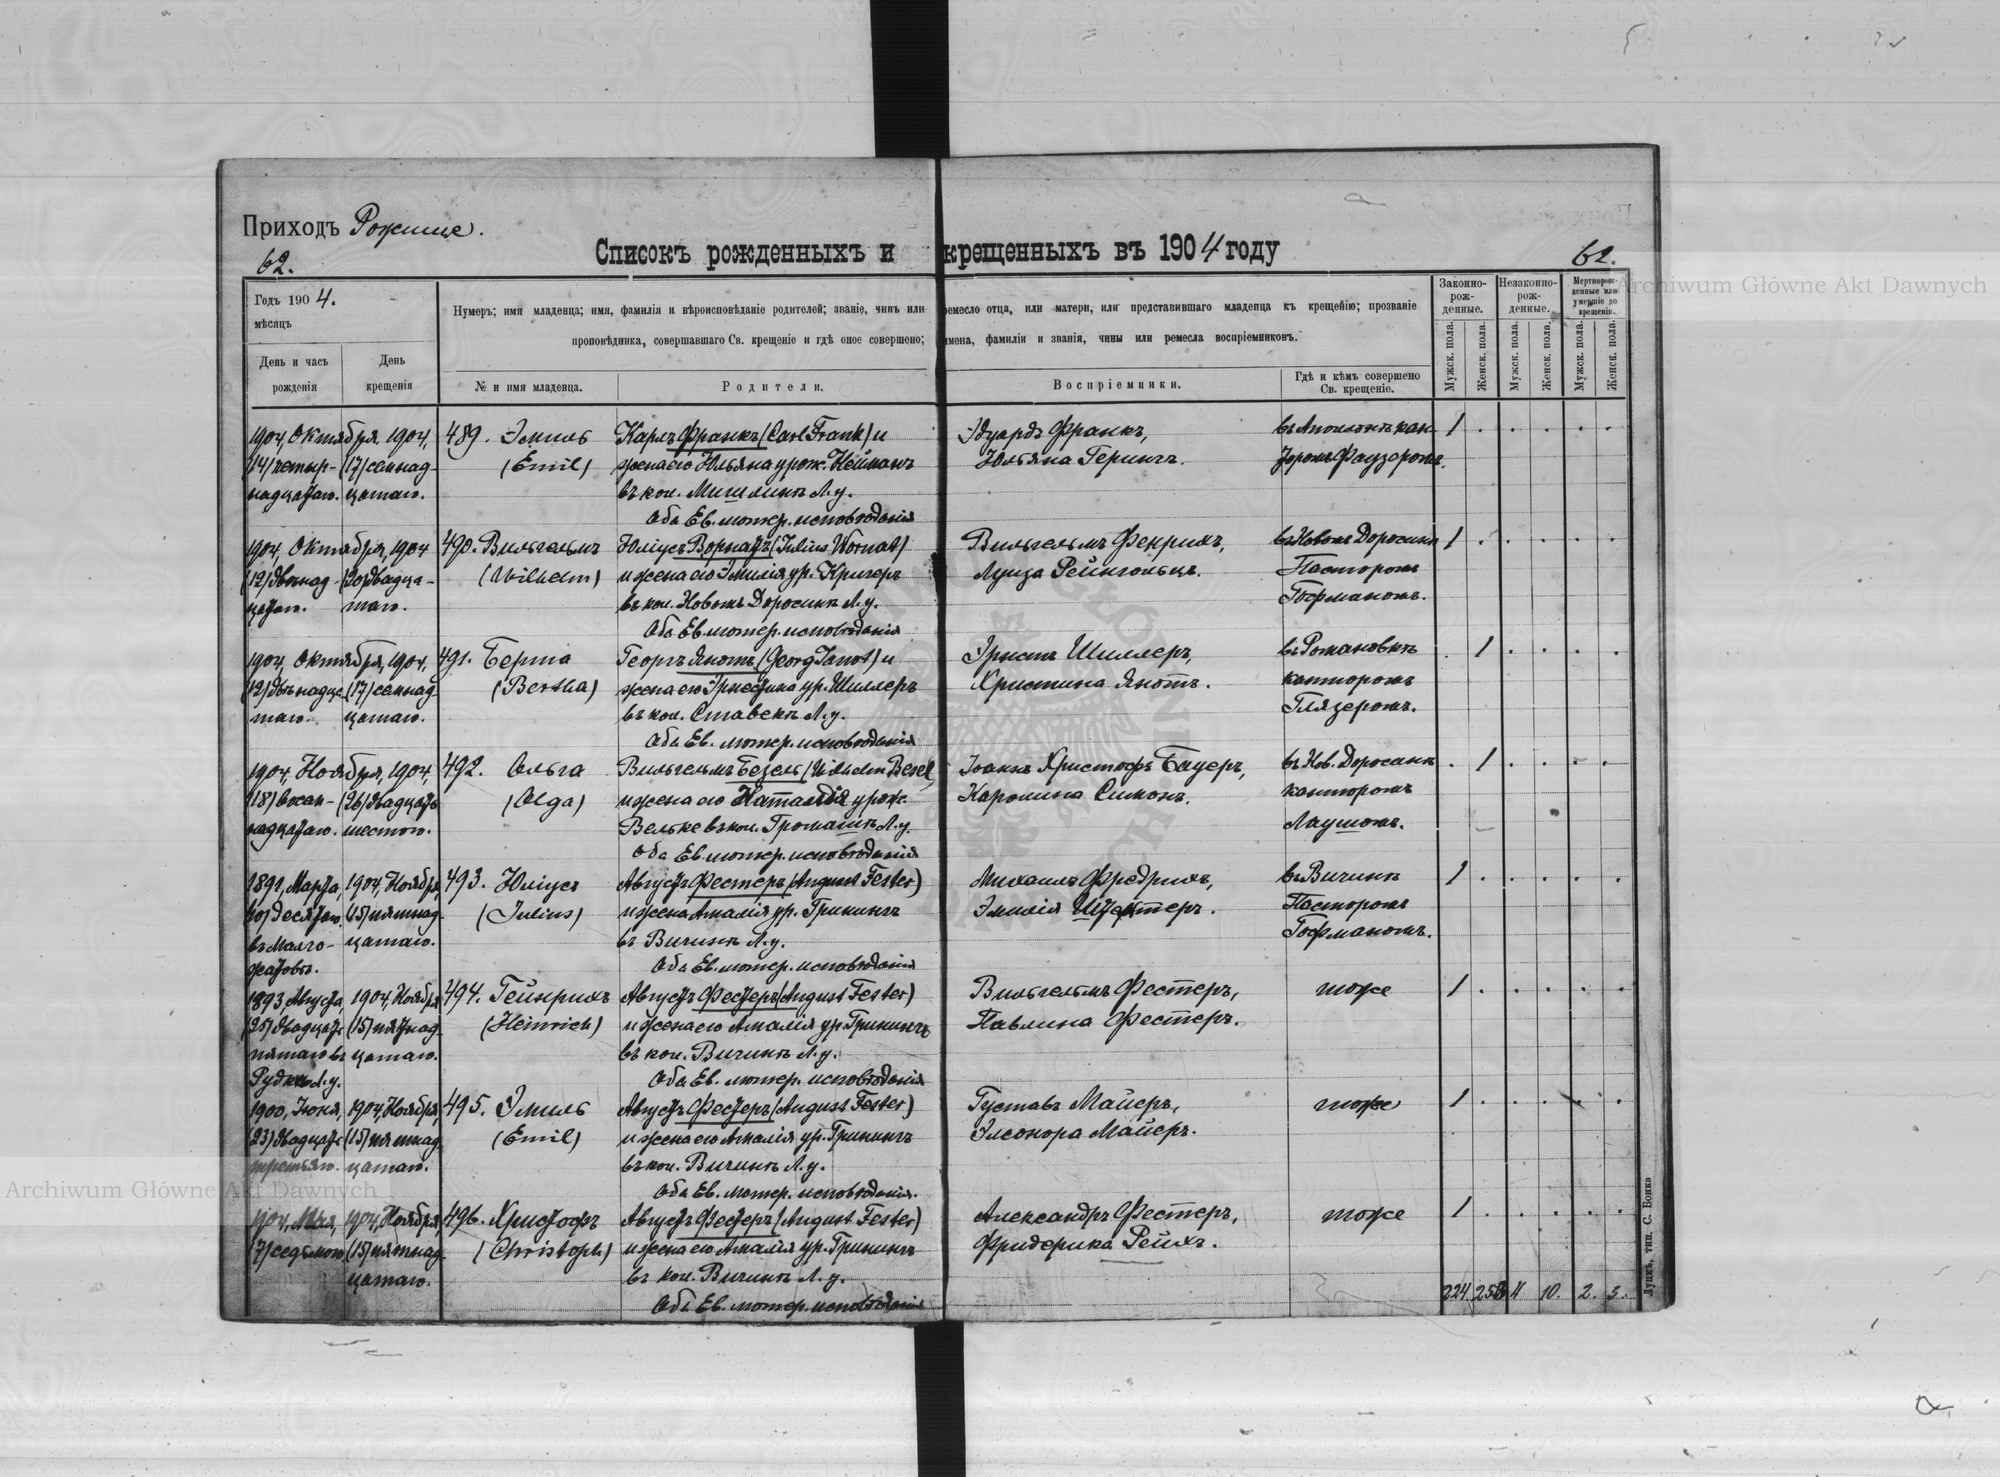 Приходъ Рожище.
62.
Списокъ рожденныхъ и крещенныхъ въ 1904 году
62.
Годъ 1904.
мѣсяцъ
День и часъ рожденія
День крещенія
Нумеръ; имя младенца; имя, фамилія и вѣроисповѣданіе родителей; званіе, чинъ или ремесло отца, или матери, или представившаго младенца къ крещенію; прозваніе
проповѣдника, совершавшаго Св. крещеніе и гдѣ оное совершено; имена, фамиліи и званія, чины или ремесла воспріемниковъ.
№ и имя младенца.
Родители.
Воспріемники.
Гдѣ и кѣмъ совершено Св. крещеніе.
Законно-рож-денные.
Незаконно-рож-денные.
Мертворож-денные или умершіе до крещенія.
Мужск. пола.
Женск. пола.
Мужск. пола.
Женск. пола.
Мужск. пола.
Женск. пола.
1904, Октября, 1904, 489. Эмиль Карлъ Франкъ (Carl Frank) и Эдуардъ Франкъ, 1
(14) четыр- (17) семнад- (Emil) жена его Юльяна урож. Нейманъ Юльяна Герингъ.
надцатаго. цатаго. въ кол. Л.у.
Оба Ев. лютер. исповѣданія
1904, Октября, 1904 490. Вильгельмъ Юліусъ Ворнатъ (Julius Wornat) Вильгельмъ Фенрихъ, въ Новомъ Доросинѣ 1
(12) двѣнад- (20) двадца- (Wilhelm) и жена его Эмилія ур. Кригеръ Луиза Рейнгольцъ. Пасторомъ
цатаго. таго. въ кол. Новомъ Доросинѣ Л.у. Гофманомъ.
Оба Ев. лютер. исповѣданія
1904, Октября, 1904, 491. Берта Георгъ Янотъ (Georg Janot) и Эрнстъ Шиллеръ, въ Романовкѣ 1
(12) двѣнадца (17) семнад (Bertha) жена его Эрнестина ур. Шиллеръ Христина Янотъ. канторомъ
таго. цатаго. въ кол. Ставекъ Л.у. Глязеромъ.
Оба Ев. лютер. исповѣданія
1904, Ноября, 1904, 492. Ольга Вильгельмъ Безель (Wilhelm Besel) Іоаннъ Христофъ Бауеръ, въ Нов. Доросинѣ 1
(18) восем- (26) двадцать (Olga) и жена его Наталія урож. Каролина Симонъ. канторомъ
надцатаго. шестого. Вельке въ кол. Л.у. Лаушомъ.
Оба Ев. лютер. исповѣданія
1891, Марта, 1904, Ноября, 493. Юліусъ Августъ Фестеръ (August Fester) Михаилъ Фредрихъ, въ Вичинѣ 1
(10) десятаго (15) пятнад- (Julius) и жена Амалія ур. Грикингъ Эмилія Пасторомъ
въ цатаго. въ Вичинѣ Л.у. Гофманомъ.
Оба Ев. лютер. исповѣданія
1893 Августа, 1904, Ноября, 494. Гейнрихъ Августъ Фестеръ (August Fester) Вильгельмъ Фестеръ, тоже 1
(25) двадцать (15) пятнад- (Heinrich) и жена его Амалія ур. Грикингъ Павлина Фестеръ.
пятаго въ цатаго. въ кол. Вичинѣ Л.у.
Л.у. Оба Ев. лютер. исповѣданія
1900, Іюня, 1904, Ноября, 495. Эмиль Августъ Фестеръ (August Fester) Густавъ Майеръ, тоже 1
(23) двадцать (15) пятнад- (Emil) и жена его Амалія ур. Грикингъ Элеонора Майеръ.
третьяго. цатаго. въ кол. Вичинѣ Л.у.
Оба Ев. лютер. исповѣданія.
1904, Мая, 1904, Ноября, 496. Христофъ Августъ Фестеръ (August Fester) Александръ Фестеръ, тоже 1
(7) седьмого (15) пятнад- (Christoph) и жена его Амалія ур. Грикингъ Фридерика Рейхъ.
цатаго. въ кол. Вичинѣ Л.у.
Оба Ев. лютер. исповѣданія
224 4 10. 2. 3.
Луцкъ, тип. С. Бонка
Archiwum Główne Akt Dawnych
Archiwum Główne Akt Dawnych